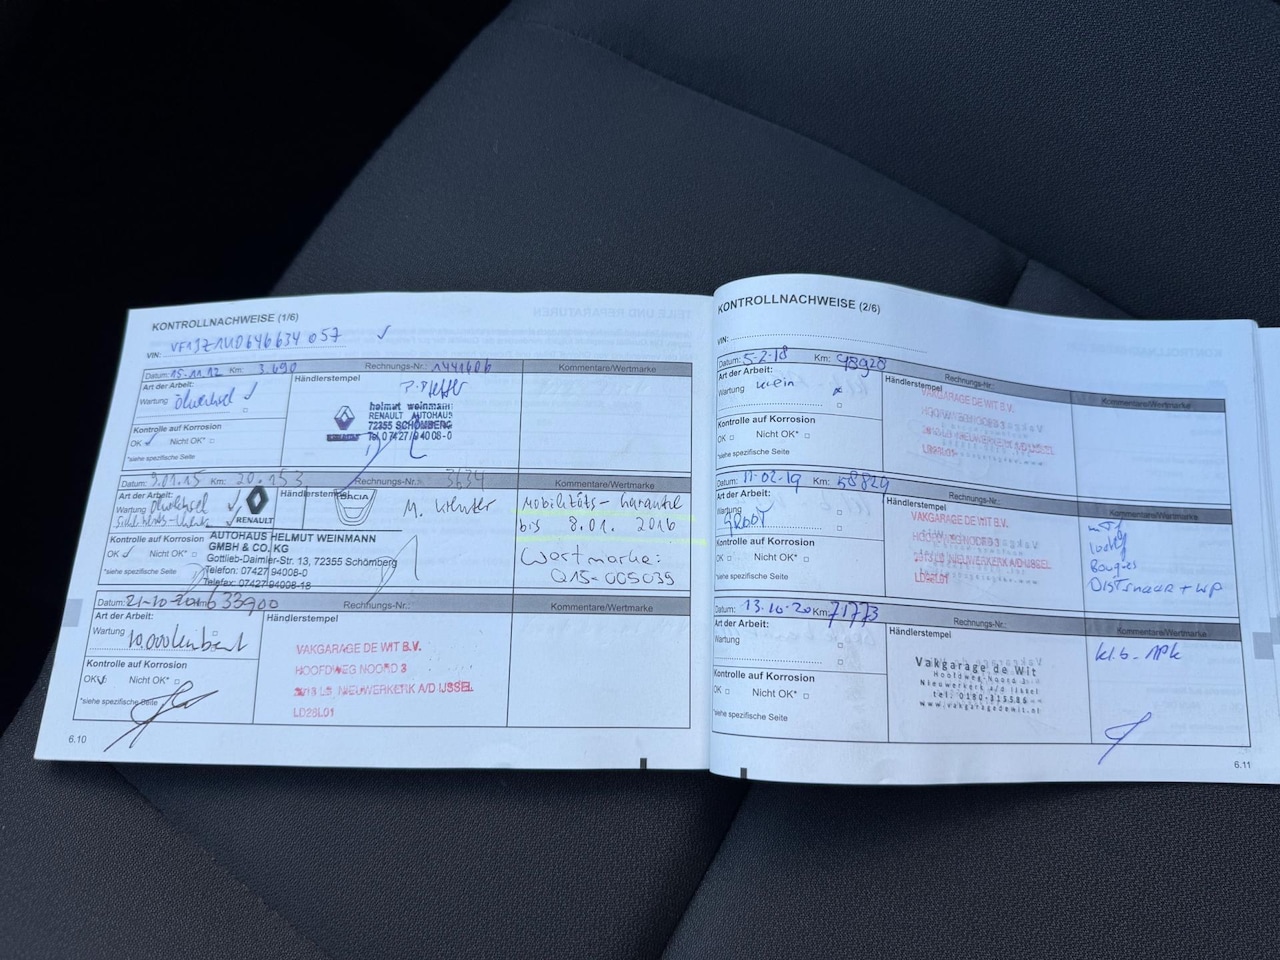 KONTROLLNACHWEISE (1/6)
VIN: VF1JZ1U0646634057
Datum: 15.11.12 Km: 3.690 Rechnungs-Nr.: 1441606 Kommentare/Wertmarke
Art der Arbeit: Händlerstempel
Wartung Ölwechsel
helmut weinmann
RENAULT AUTOHAUS
72355 SCHÖMBERG
Tel. 07427/94008-0
Kontrolle auf Korrosion
OK Nicht OK*
*siehe spezifische Seite
Datum: 9.01.15 Km: 20.153 Rechnungs-Nr.: 3634 Kommentare/Wertmarke
Art der Arbeit: Händlerstempel
Wartung Ölwechsel
RENAULT
DACIA
Mobilitäts-Garantie
bis 8.01.2016
Wertmarke:
Q15-005035
AUTOHAUS HELMUT WEINMANN
GMBH & CO. KG
Gottlieb-Daimler-Str. 13, 72355 Schömberg
Telefon: 07427 94008-0
Telefax: 07427 94008-18
Kontrolle auf Korrosion
OK Nicht OK*
*siehe spezifische Seite
Datum: 21-10-2016 33900 Rechnungs-Nr.: Kommentare/Wertmarke
Art der Arbeit: Händlerstempel
Wartung
VAKGARAGE DE WIT B.V.
HOOFDWEG NOORD 3
2913 LB NIEUWERKERK A/D IJSSEL
LD28L01
Kontrolle auf Korrosion
OK Nicht OK*
*siehe spezifische Seite
6.10
KONTROLLNACHWEISE (2/6)
VIN:
Datum: 5-2-18 Km: 48920 Rechnungs-Nr.: Kommentare/Wertmarke
Art der Arbeit: Händlerstempel
Wartung klein
VAKGARAGE DE WIT B.V.
HOOFDWEG NOORD 3
Kontrolle auf Korrosion
OK Nicht OK*
*siehe spezifische Seite
Datum: 11-02-19 Km: 58829 Rechnungs-Nr.: Kommentare/Wertmarke
Art der Arbeit: Händlerstempel
Wartung
GROOT
VAKGARAGE DE WIT B.V.
HOOFDWEG NOORD 3
2913 LB NIEUWERKERK A/D IJSSEL
LD28L01
Bougies
Distr naar + WP
Kontrolle auf Korrosion
OK Nicht OK*
*siehe spezifische Seite
Datum: 13-10-20 Km: 71773 Rechnungs-Nr.: Kommentare/Wertmarke
Art der Arbeit: Händlerstempel
Wartung
kl.b. APK
Vakgarage de Wit
Hoofdweg Noord 3
Nieuwerkerk a/d IJssel
tel. 0180-315586
www.vakgaragedewit.nl
Kontrolle auf Korrosion
OK Nicht OK*
*siehe spezifische Seite
6.11